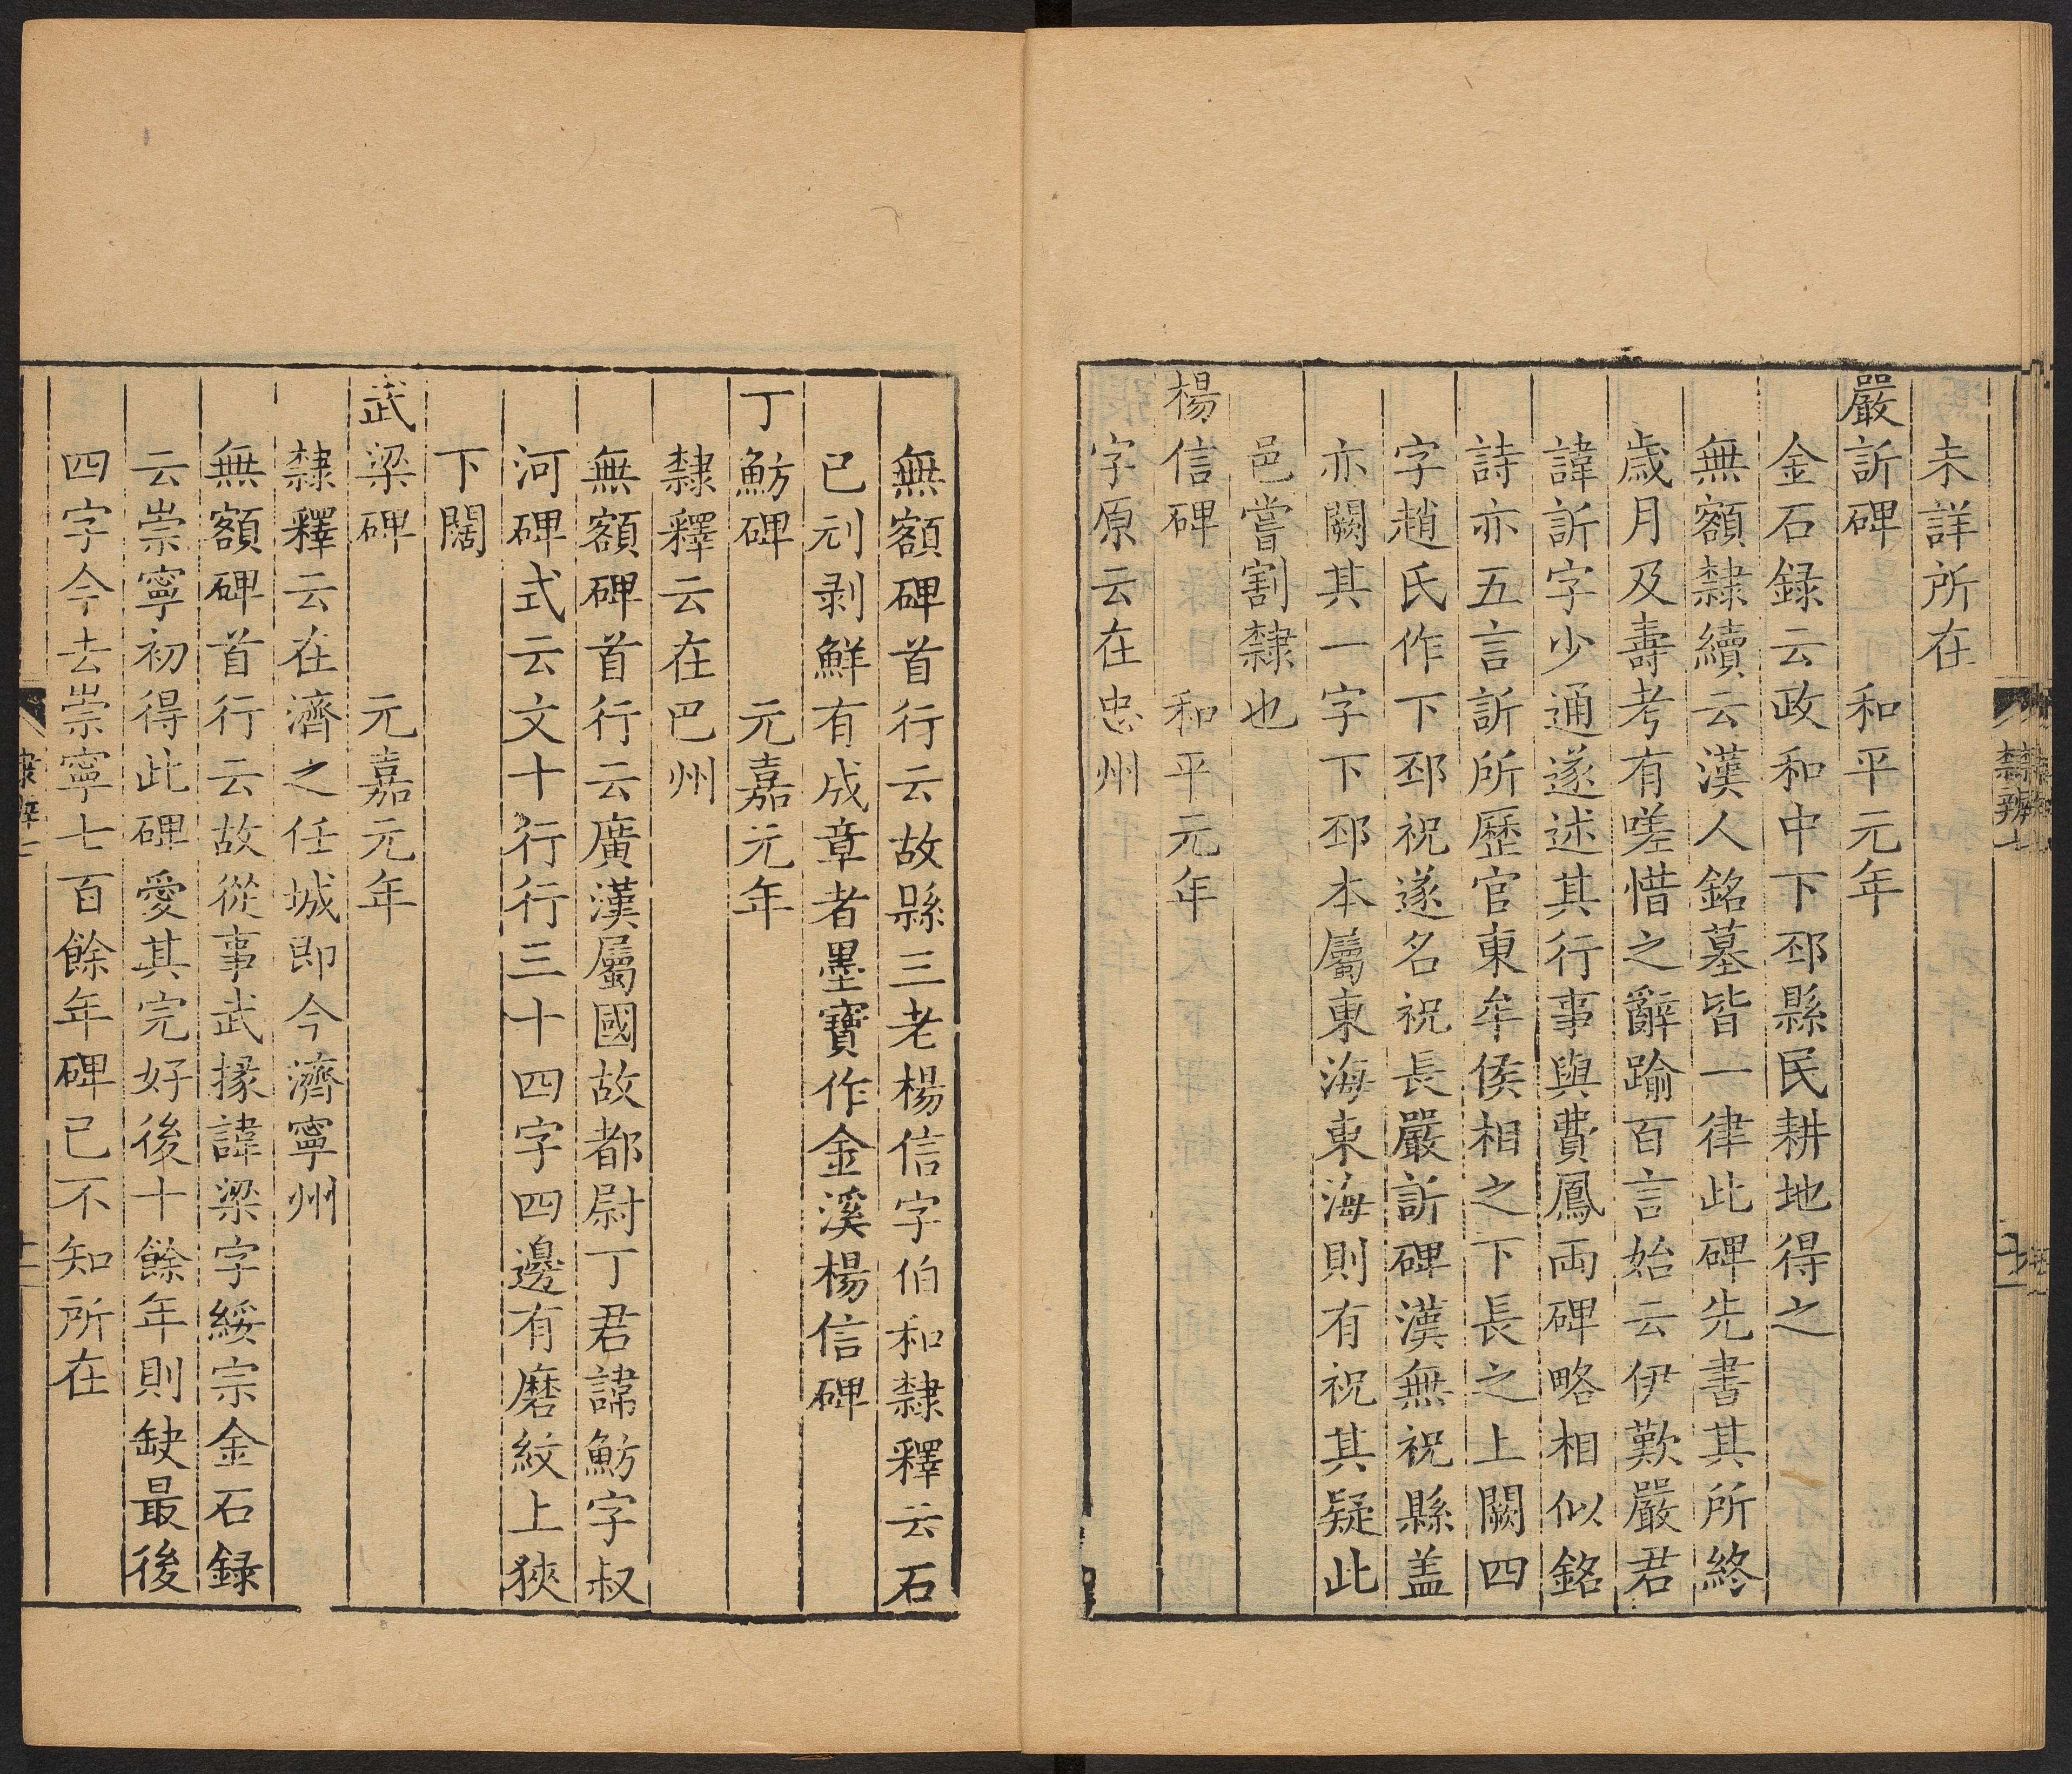 未詳所在
嚴訢碑 和平元年
金石録云政和中下邳縣民耕地得之
無額隸續云漢人銘墓皆一律此碑先書其所終
歲月及壽考有嗟惜之辭踰百言始云伊歎嚴君
諱訢字少通遂述其行事與費鳳両碑略相似銘
詩亦五言訢所歷官東牟侯相之下長之上闕四
字趙氏作下邳祝遂名祝長嚴訢碑漢無祝縣盖
亦闕其一字下邳本屬東海東海則有祝其疑此
邑嘗割隸也
楊信碑 和平元年
字原云在忠州
無額碑首行云故縣三老楊信字伯和隸釋云石
已刓剥鮮有成章者墨寶作金溪楊信碑
丁魴碑 元嘉元年
隸釋云在巴州
無額碑首行云廣漢屬國故都尉丁君諱魴字叔
河碑式云文十行行三十四字四邊有磨紋上狹
下闊
武梁碑 元嘉元年
隸釋云在濟之任城即今濟寧州
無額碑首行云故從事武掾諱梁字綏宗金石録
云崇寧初得此碑愛其完好後十餘年則缺最後
四字今去崇寧七百餘年碑已不知所在
隸辨七